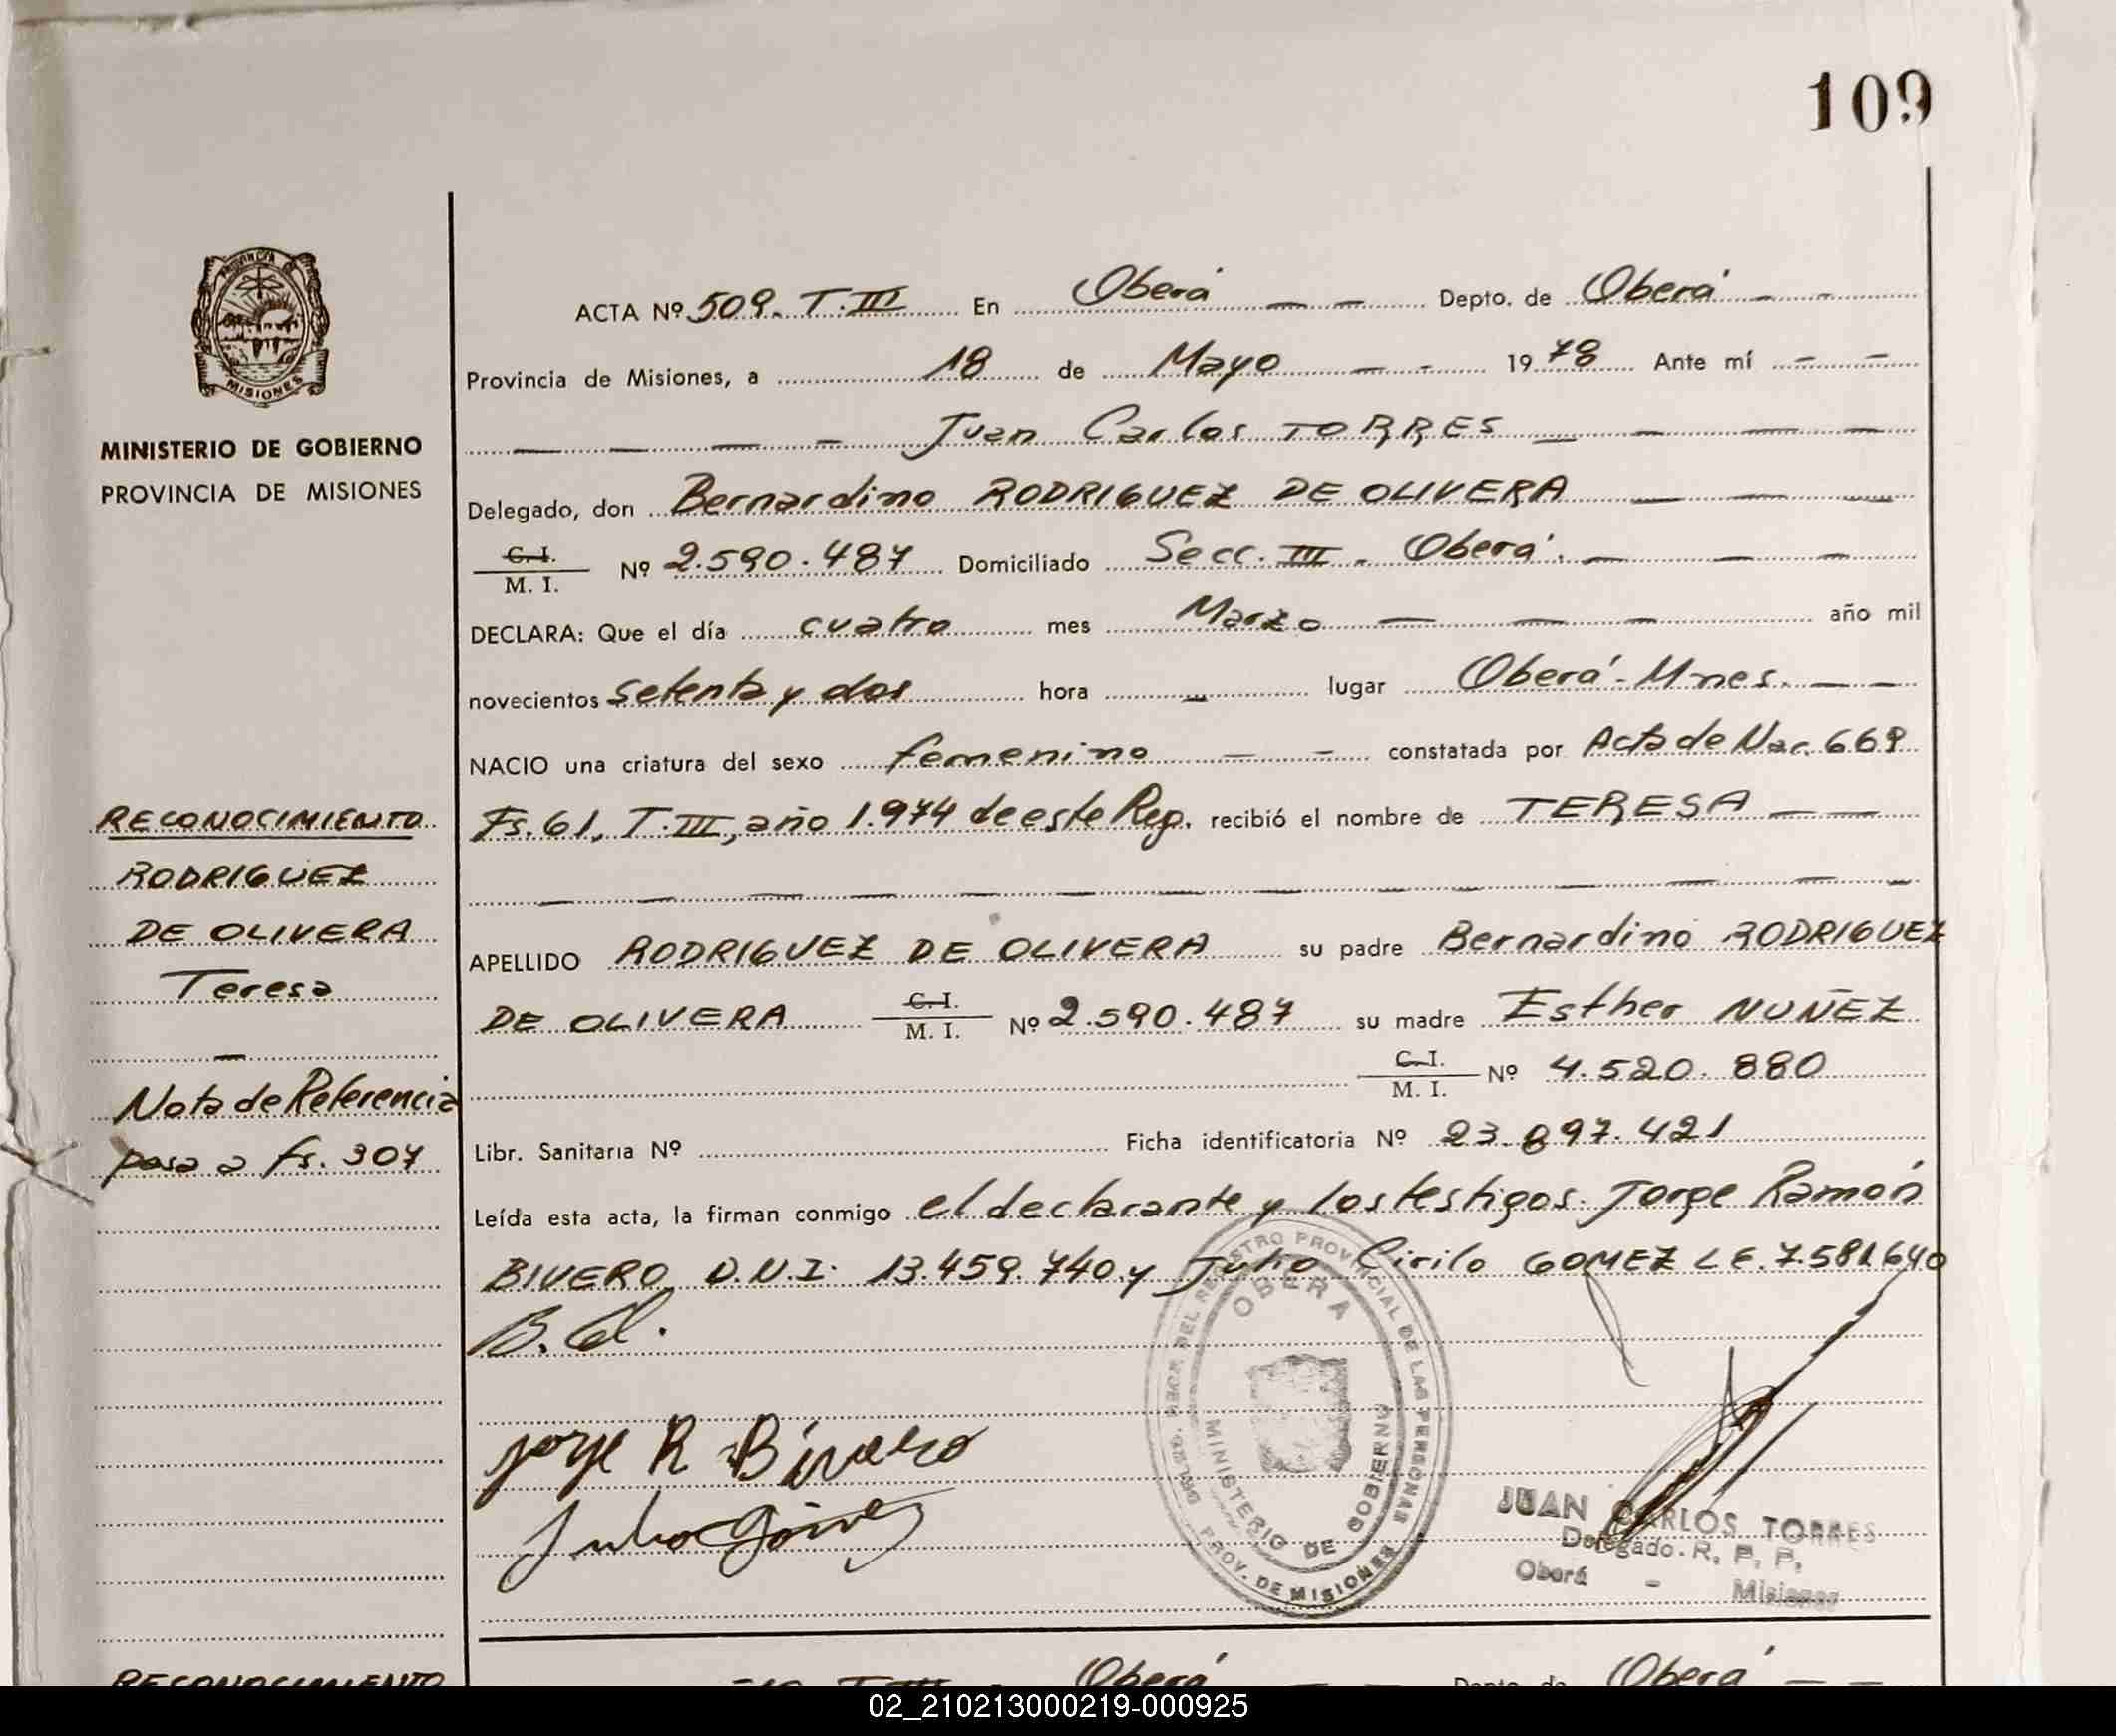 109
ACTA Nº 509. T. III En Oberá Depto. de Oberá
Provincia de Misiones, a 18 de Mayo 1978 Ante mí
Juan Carlos TORRES
MINISTERIO DE GOBIERNO
PROVINCIA DE MISIONES
Delegado, don Bernardino RODRIGUEZ DE OLIVERA
C. I.
M. I. Nº 2.590.487 Domiciliado Secc. III - Oberá.
DECLARA: Que el día cuatro mes Marzo año mil
novecientos setenta y dos hora - lugar Oberá - Mnes.
NACIO una criatura del sexo femenino constatada por Acta de Nac. 669
RECONOCIMIENTO
Fs. 61, T. III, año 1.974 de este Reg. recibió el nombre de TERESA
RODRIGUEZ
DE OLIVERA
Teresa
APELLIDO RODRIGUEZ DE OLIVERA su padre Bernardino RODRIGUEZ
DE OLIVERA C. I.
M. I. Nº 2.590.487 su madre Esther NUÑEZ
C. I.
M. I. Nº 4.520.880
Nota de Referencia
pasa a fs. 307
Libr. Sanitaria Nº Ficha identificatoria Nº 23.897.421
Leída esta acta, la firman conmigo el declarante y los testigos. Jorge Ramón
BIVERO D.N.I. 13.459.740 y Julio Cirilo GOMEZ L.E. 7.581.640
B. O.
Jorge R Bivero
Julio Gómez
REGISTRO PROVINCIAL DE LAS PERSONAS
OBERA
MINISTERIO DE GOBIERNO
PROV. DE MISIONES
JUAN CARLOS TORRES
Delegado. R. P. P.
Oberá - Misiones
RECONOCIMIENTO
Oberá Depto. de Oberá
02_210213000219-000925